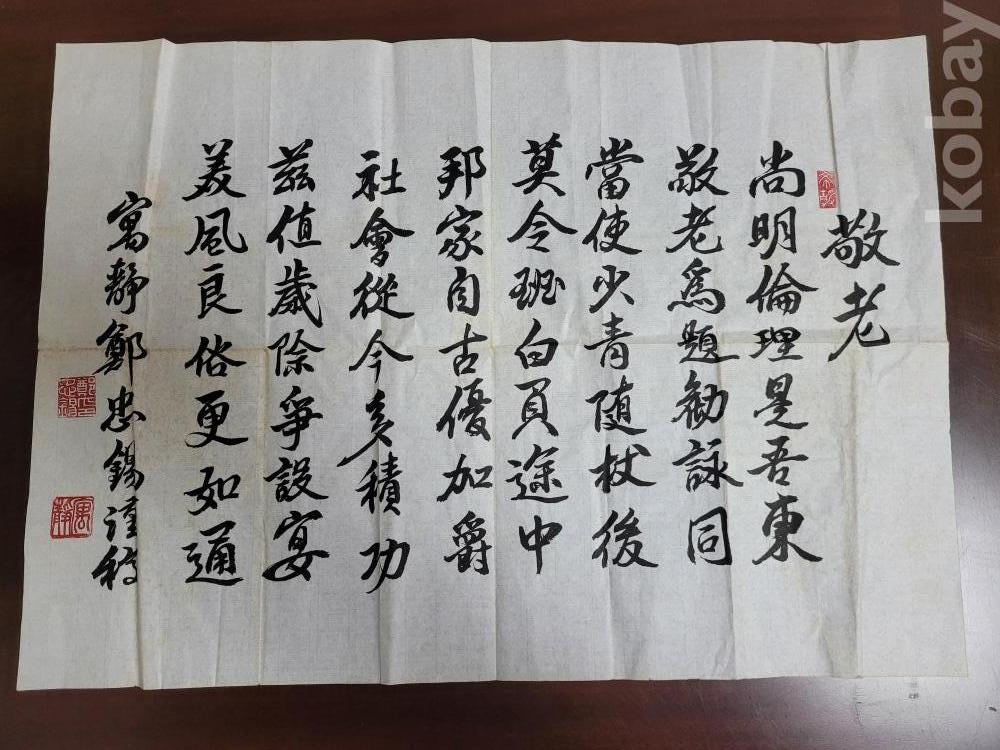 敬老
尚明倫理是吾東
敬老爲題勸詠同
當使少青随杖後
莫令班白負途中
邦家自古優加爵
社會從今多積功
茲值歲除爭設宴
美風良俗更如通
寓靜鄭忠錫謹稿
kobay